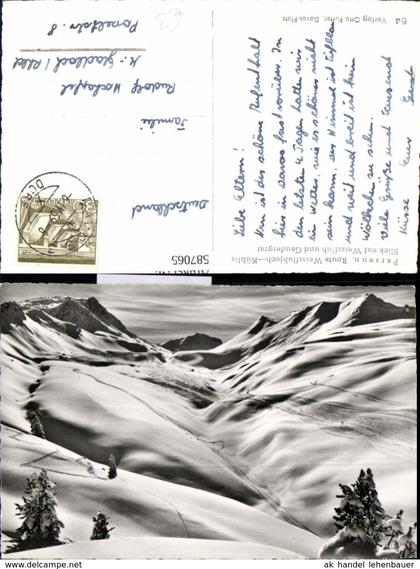 Parsenn. Route Weissfluhjoch—Küblis
Blick auf Weissfluh und Gaudergrat
64 Verlag Otto Furter, Davos-Platz
Liebe Eltern!
Nun ist der schöne Aufenthalt
hier in Davos fast vorüber. In
den letzten 4 Tagen hatten wir
ein Wetter, wie es schöner nicht
sein kann. Der Himmel ist tiefblau
und weit und breit ist kein
Wölkchen zu sehen.
Viele Grüße und tausend
Küsse Eure
Familie
Rudolf
M. Gladbach / Rhld
8
Deutschland
63
ARTIKEL-Nr.
587065
ak handel lehenbauer